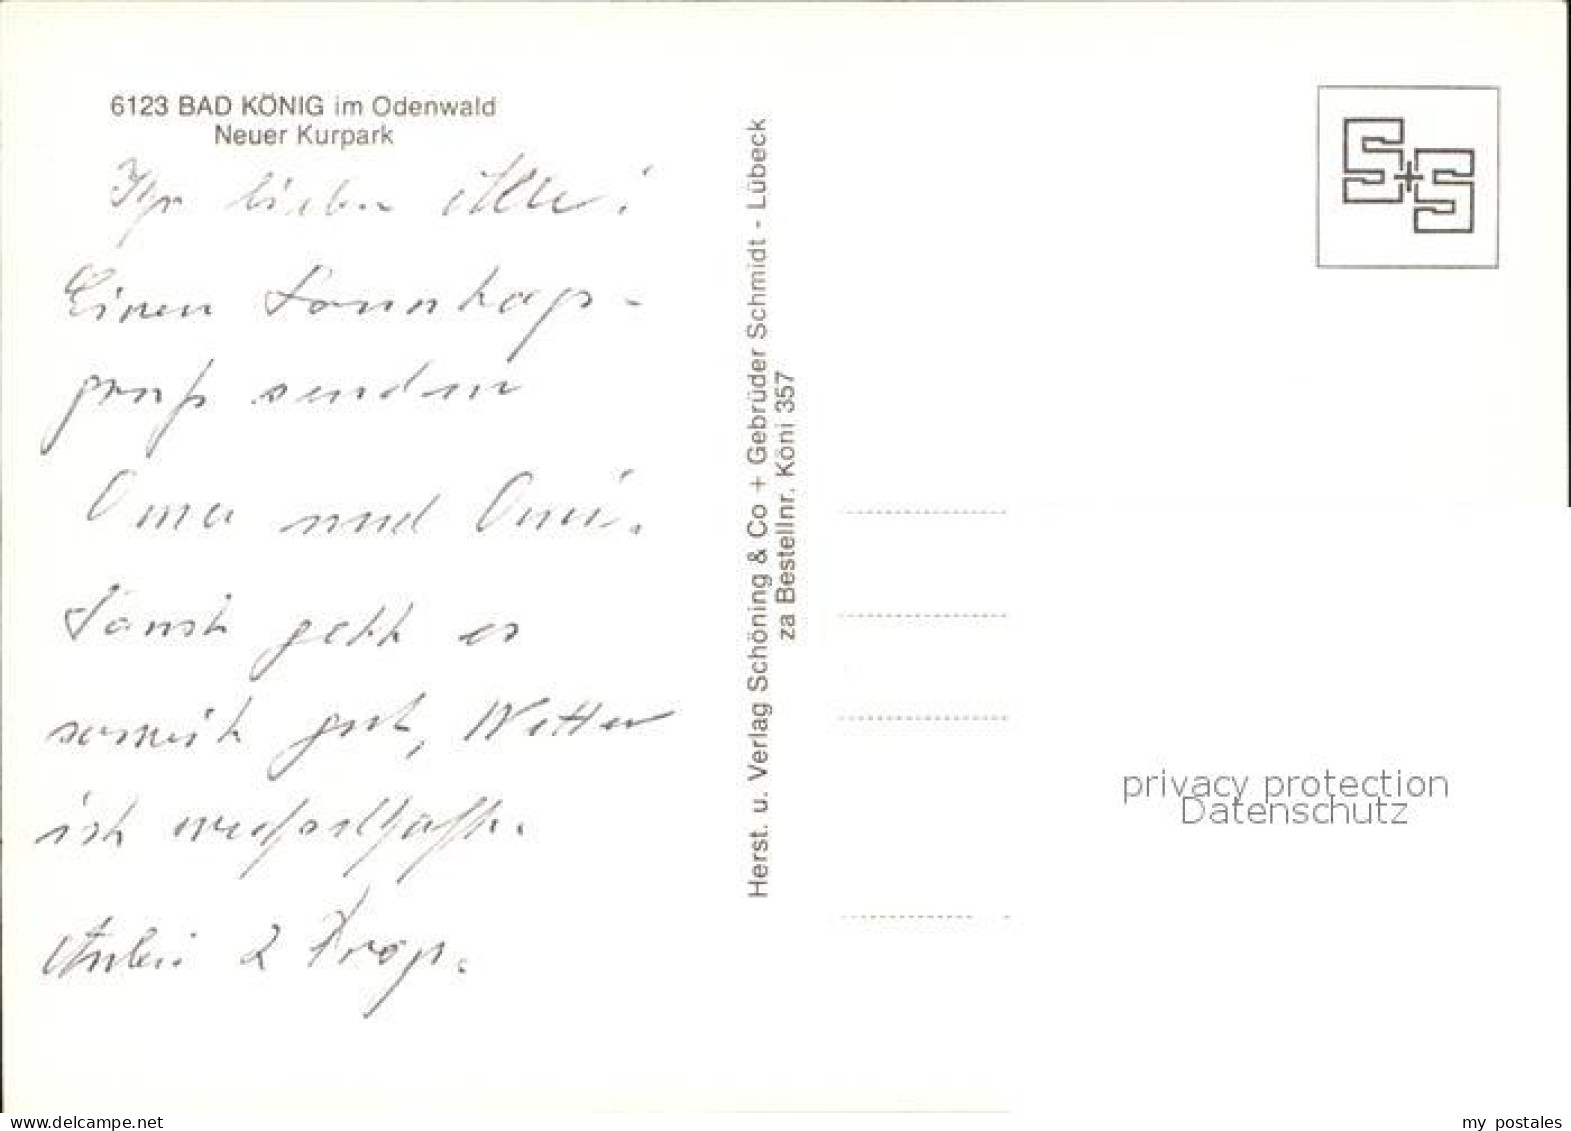 6123 BAD KÖNIG im Odenwald
Neuer Kurpark
Ihr lieben Alle!
Einen Sonntags-
gruß senden
Oma und Omi.
Sonst geht es
soweit gut, Wetter
ist wechselhaft.
Anbei 2 Prosp.
Herst. u. Verlag Schöning & Co + Gebrüder Schmidt - Lübeck
za Bestellnr. Köni 357
S+S
privacy protection
Datenschutz
www.delcampe.net
my_postales